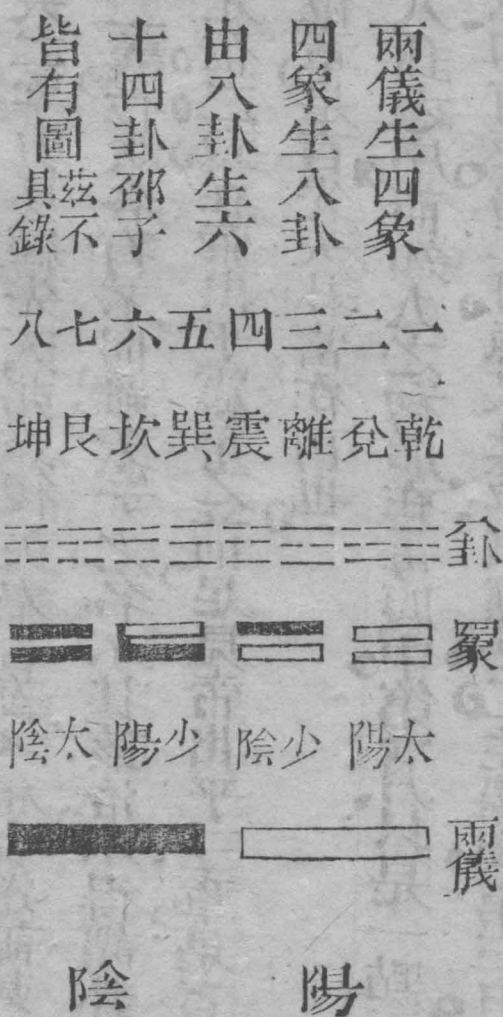 兩儀生四象
四象生八卦
由八卦生六
十四卦邵子
皆有圖茲不
具錄
一二三四五六七八
乾兌離震巽坎艮坤
八卦
四象
太陽 少陰 少陽 太陰
兩儀
陽 陰